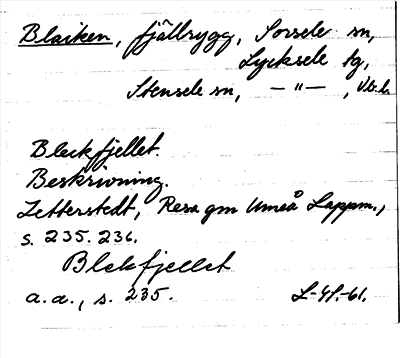 Blaiken, fjällrygg, Sorsele sn,
Lycksele tg,
Stensele sn, — " — , Vb. l.
Bleckfjellet.
Beskrivning.
Zetterstedt, Resa gm Umeå Lappm.,
s. 235. 236.
Blekfjellet
a. a., s. 235. L-41.-61.